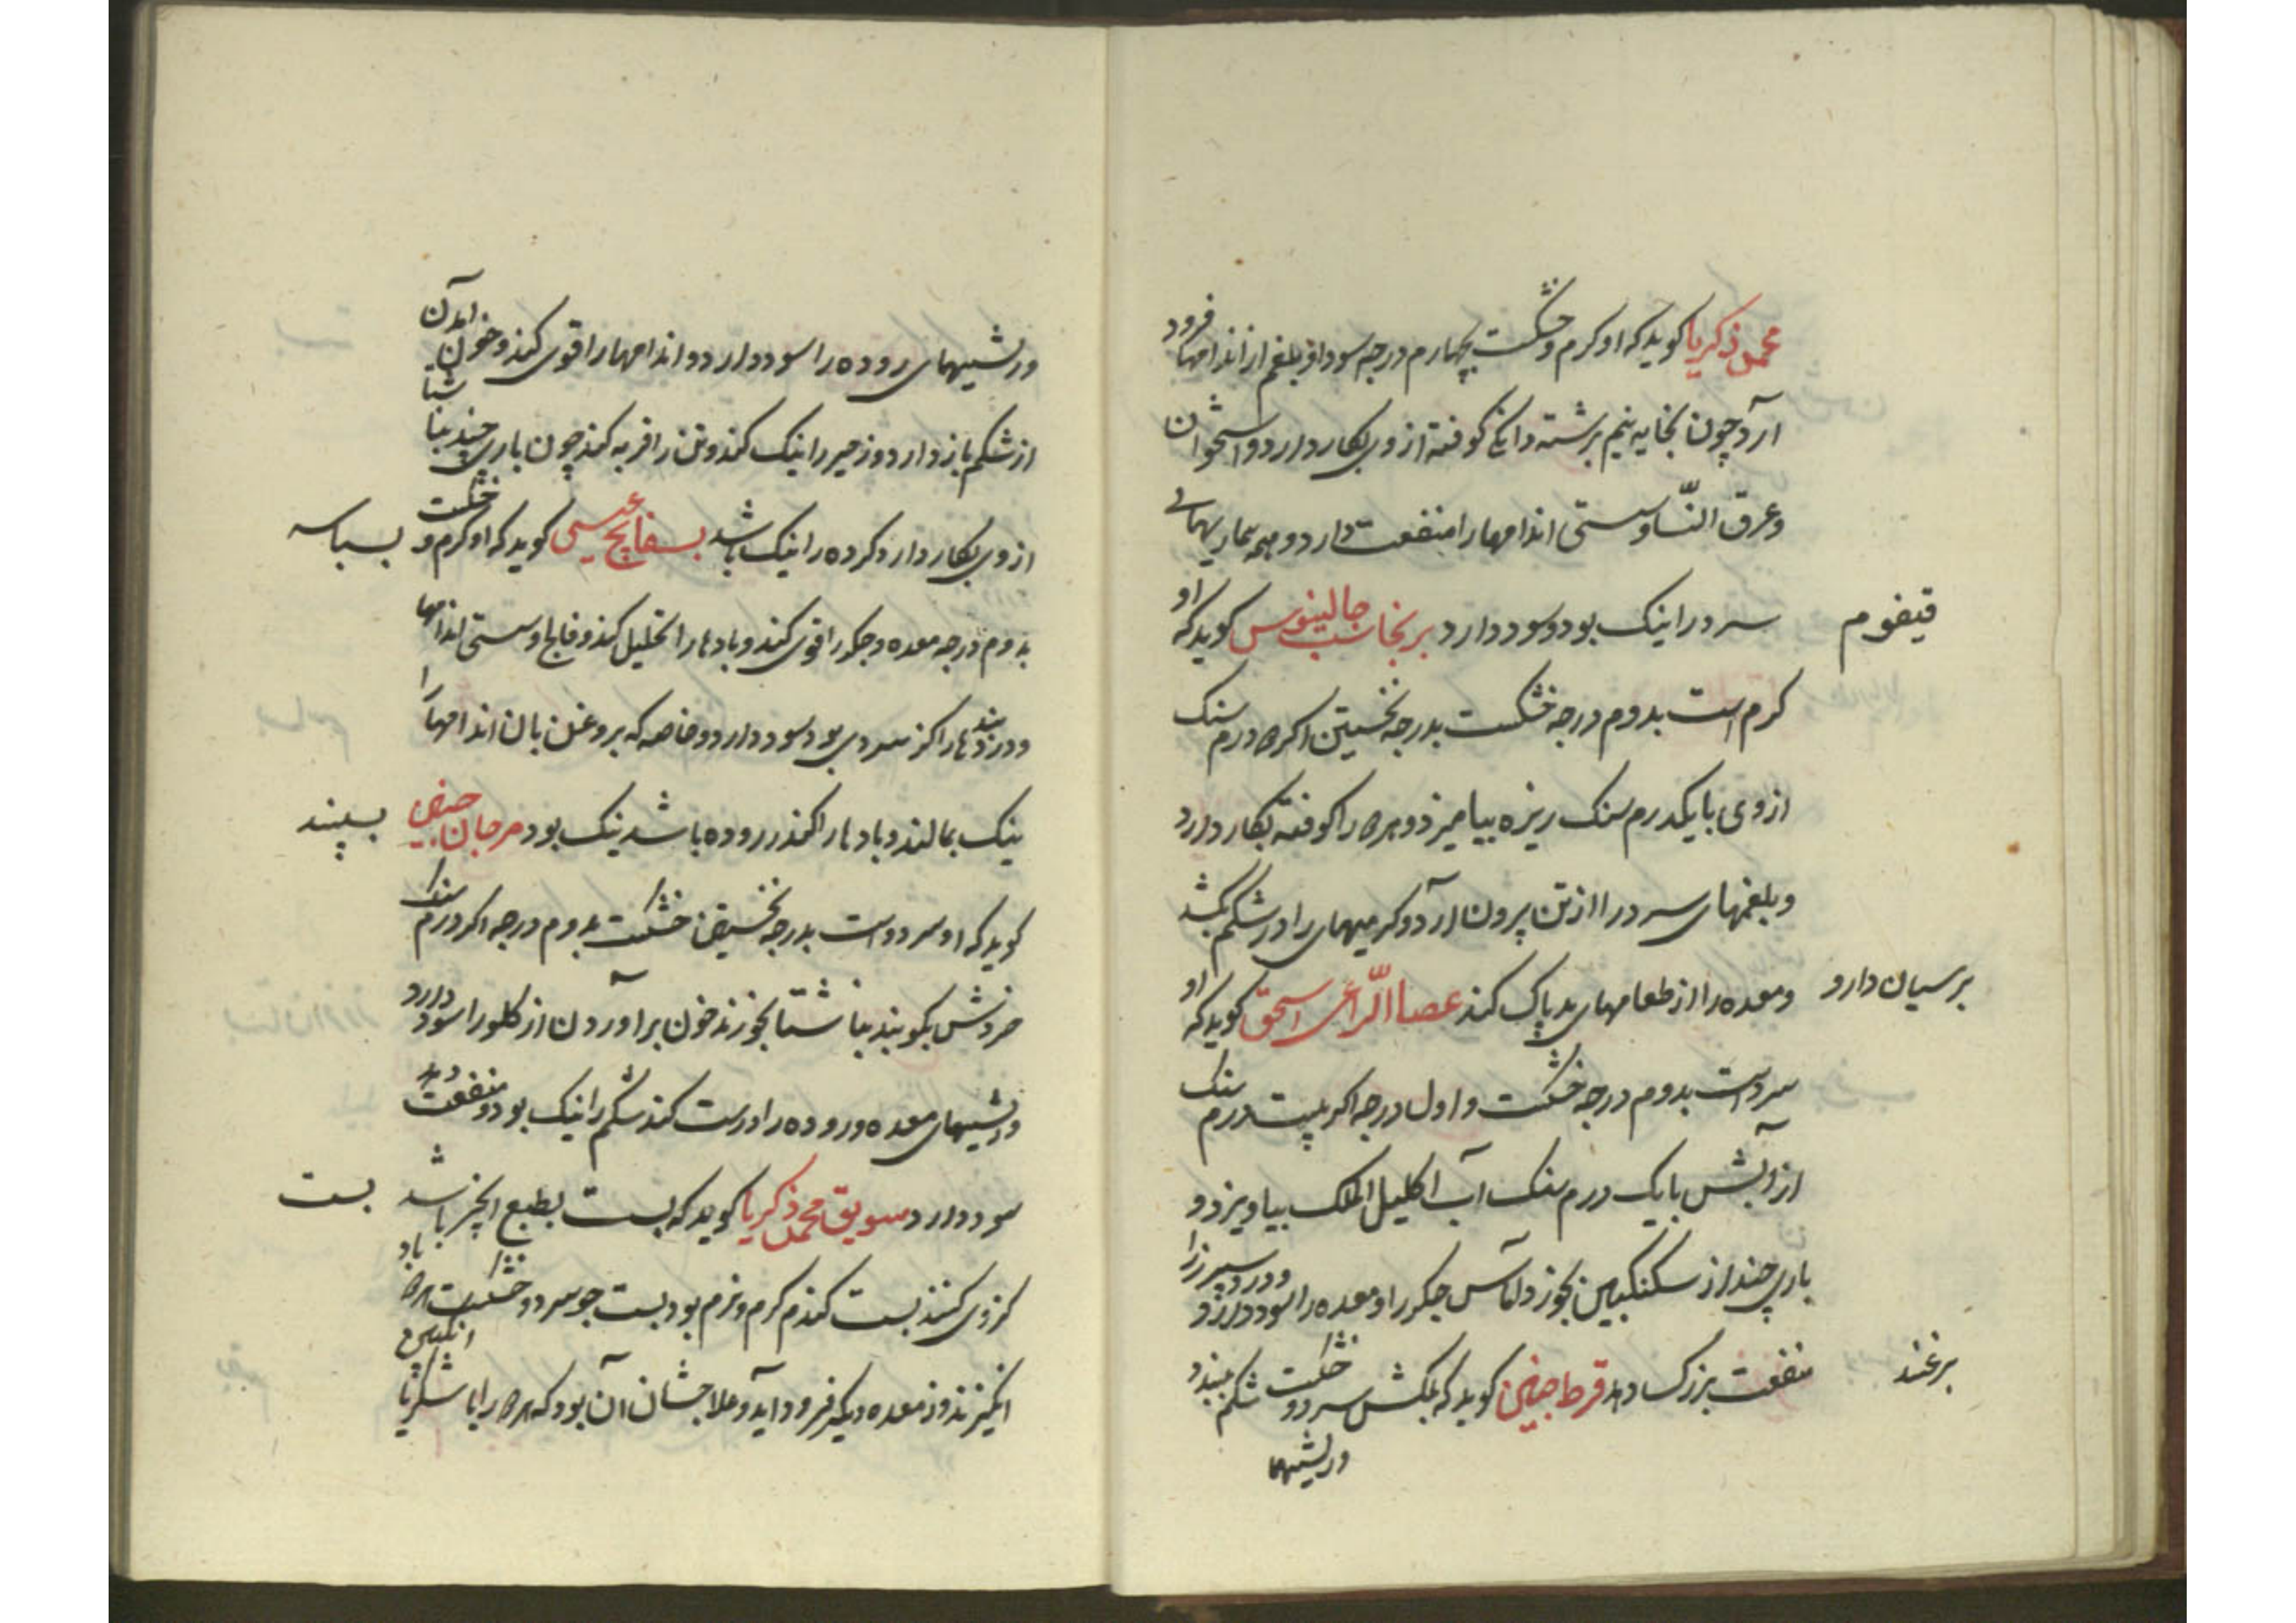 محمد ذکریا کوید که او کرم و خشکست بچهارم درجه سودا و بلغم از اندامها فرود
آرد چون بخایه نیم برشته دانکی کوفته از وی بکار دارد و استخوان
و عرق النّسا و سستی اندامها را منفعت دارد و همه بیماریهای
قیصوم
سرد را نیک بود و سود دارد برنجاسب جالینوس کوید که او
کرم است بدوم درجه خشکست بدرجه نخستین اکر ۲ درم سنک
از وی با یکدرم سنک ریزه بیامیزد و هر ۲ را کوفته بکار دارد
و بلغمهای سرد را از تن بیرون آرد و کرمیهای را در شکم بکشد
برسیان دارو
و معده را از طعامهای بد پاک کند عصا الرّاعی اسحق کوید که او
سردست بدوم درجه خشکست و اول درجه اکر بیست درم سنک
از آبش با یک درم سنک آب اکلیل الملک بیاویزد و
باری چند از سکنکبین بخورد آماس جکر را و معده را سود دارد و درد سپرز را
برغند
منفعت بزرک دهد قرط حبیش کوید که بلکش سرد و خشکست شکم ببندد
و ریشیها
و ریشیهای روده را سود دارد و اندامها را قوی کند و خون آمدن
از شکم باز دارد و زحیر را نیک کند و تن را فربه کند چون باری چند بناشتا
از وی بکار دارد کرده را نیک باشد بسفایج عیسی کوید که او کرم و خشکست
بسباسه
بدوم درجه معده و جکر را قوی کند و بادها را تحلیل کند و فالج و سستی اندامها را
و درد بندها را کز سردی بود سود دارد و خاصه که بروغن بان اندامها را
نیک بمالند و بادها را کندر روده باشد نیک بود مرجان حبیش
بسپند
کوید که او سردست بدرجه نخستین خشکست بدوم درجه اکر درم سنک
خردش بکوبند بناشتا بخورند خون برآوردن از کلو را سود دارد
و ریشیهای معده و روده را درست کند شکم را نیک بود و منفعت دهد
سود دارد سویق محمد ذکریا کوید که بست بطبع آنچیز باشد
بست
کزوی کنند بست کندم کرم و نرم بود بست جو سرد و خشکست هر ۲ باد
انکیزند و از معده دیکر فرود آید و علاجشان آن بود که هر ۲ را با شکر یا انکبین